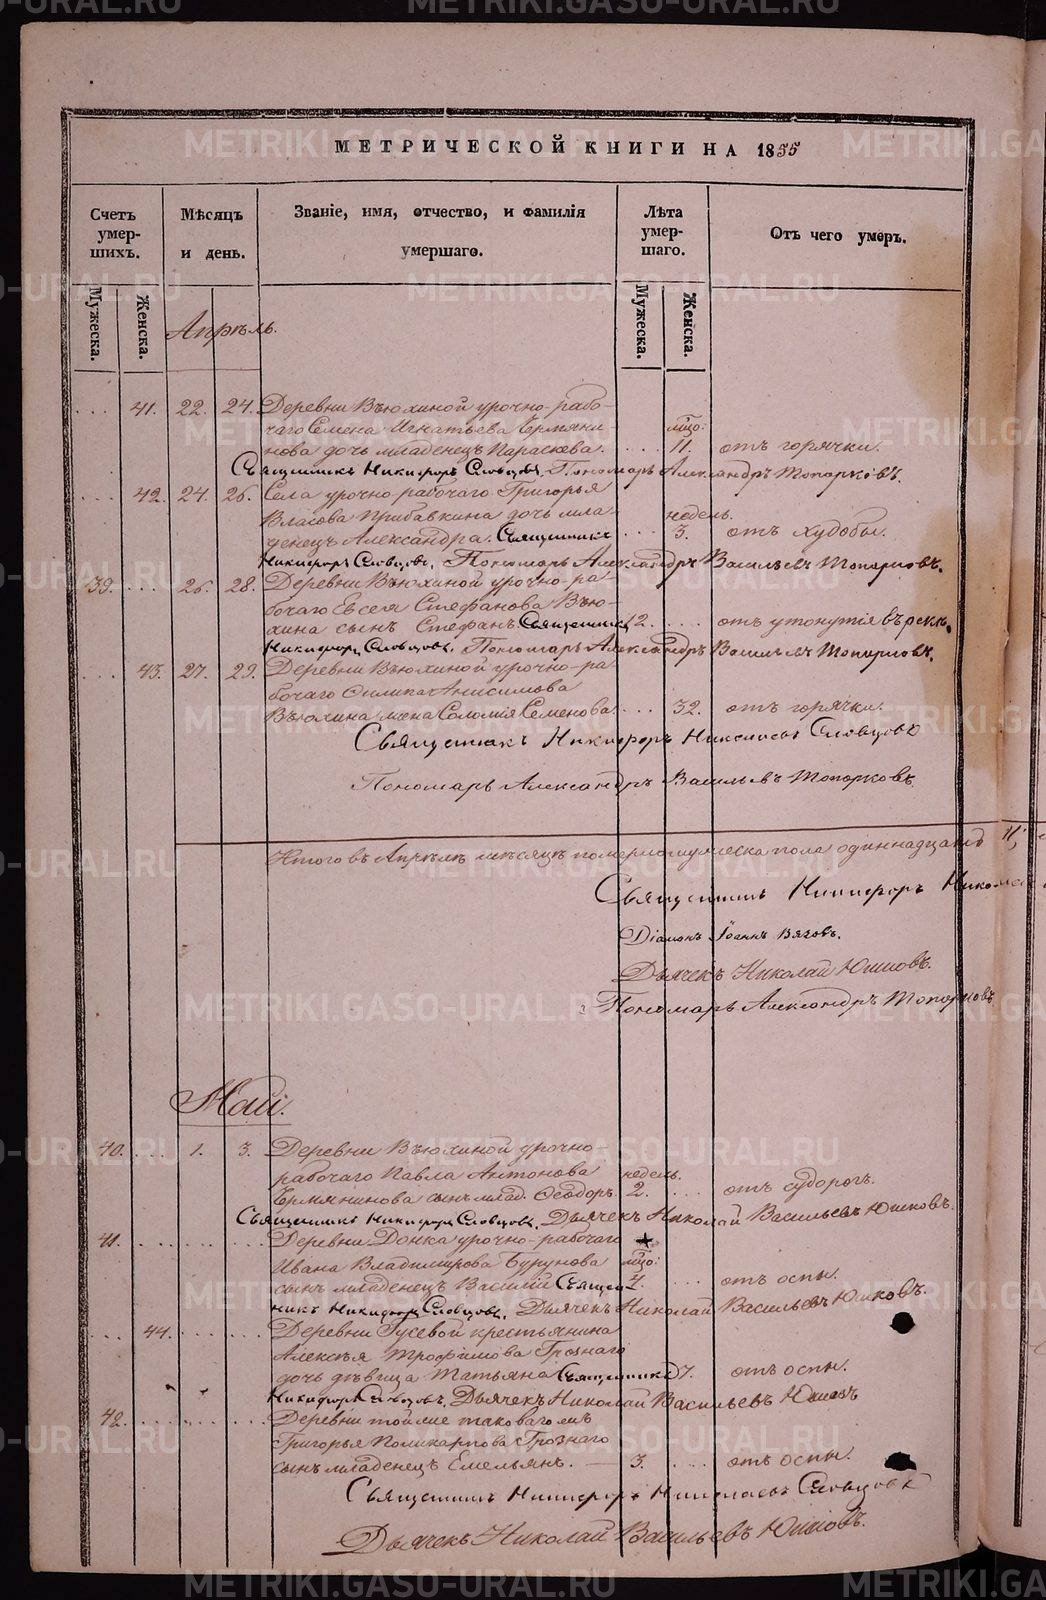 МЕТРИЧЕСКОЙ КНИГИ НА 1855
Счетъ умер-шихъ.
Мужеска.
Женска.
Мѣсяцъ и день.
Званіе, имя, отчество, и фамилія умершаго.
Лѣта умер-шаго.
Мужеска.
Женска.
Отъ чего умеръ.
Апрѣль.
41. 22. 24. Деревни Вьюхиной урочно-рабо-
чаго Семена Игнатьева Чермяни- мѣсо:
нова дочь младенецъ Параскева. 11. отъ горячки.
Священникъ Никифоръ Словцовъ. Пономарь Александръ Топорковъ.
42. 24. 26. Села урочно-рабочаго Григорья
Власова Прибавкина дочь мла- недель.
денецъ Александра. Священникъ 3. отъ худобы.
Никифоръ Словцовъ. Пономарь Александръ Васильевъ Топорковъ.
39. 26. 28. Деревни Вьюхиной урочно-ра-
бочаго Евсея Стефанова Вью-
хина сынъ Стефанъ. Священникъ 2. отъ утонутія въ рекѣ.
Никифоръ Словцовъ. Пономарь Александръ Васильевъ Топорковъ.
43. 27. 29. Деревни Вьюхиной урочно-ра
бочаго Анисимова
Вьюхина жена Саломія Семенова. 32. отъ горячки.
Священникъ Никифоръ Николаевъ Словцовъ
Пономарь Александръ Васильевъ Топорковъ.
Итого въ Апрѣлѣ мѣсяцѣ померло мужеска пола одиннадцать 11,
Священникъ Никифоръ Николаевъ
Діаконъ Іоаннъ Вязовъ.
Дьячекъ Николай Юшковъ.
Пономарь Александръ Топорковъ
Маій.
40. 1. 3. Деревни Вьюхиной урочно
рабочаго Павла Антонова недель.
Чермянинова сынъ млад. Феодоръ. 2. отъ судорогъ.
Священникъ Никифоръ Словцовъ. Дьячекъ Николай Васильевъ Юшковъ.
41. Деревни Донка урочно-рабочаго
Ивана Владимирова Бурунова мѣсо:
сынъ младенецъ Василий Священ 4. отъ оспы.
никъ Никифоръ Словцовъ. Дьячекъ Николай Васильевъ Юшковъ.
44. Деревни Гусевой крестьянина
Алексѣя Трофимова Грознаго
дочь дѣвица Татьяна Священникъ 7. отъ оспы.
Никифоръ Словцовъ. Дьячекъ Николай Васильевъ Юшковъ
42. Деревни тойже таковагожъ
Григорья Поликарпова Грознаго
сынъ младенецъ Емельянъ. 3. отъ оспы.
Священникъ Никифоръ Николаевъ Словцовъ
Дьячекъ Николай Васильевъ Юшковъ.
METRIKI.GASO-URAL.RU